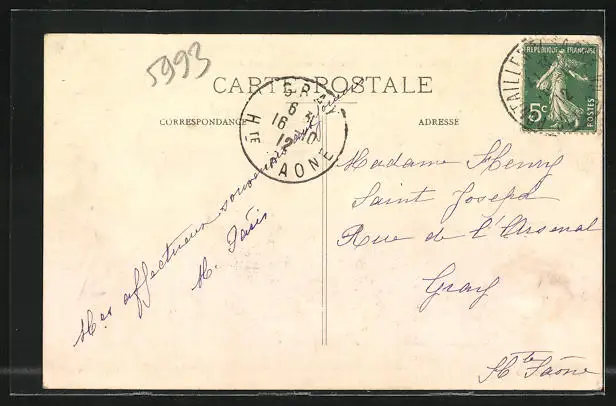 5993
CARTE POSTALE
CORRESPONDANCE
ADRESSE
REPUBLIQUE FRANÇAISE
5c
POSTES
GRAY
6
16 3
12 10
Hte SAONE
Mes affectueux souvenirs
M. Faris
Madame Henry
Saint Joseph
Rue de l'Arsenal
Gray
Hte Saône